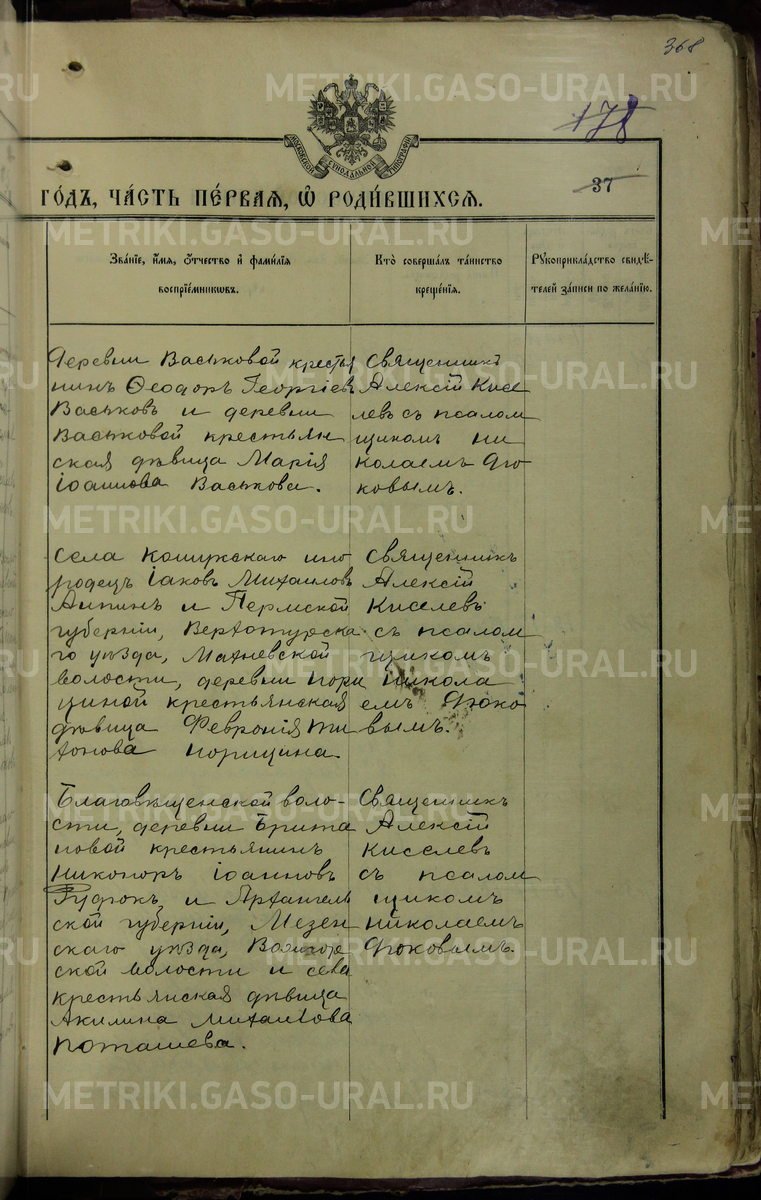 368
178
МОСКОВСКОЙ СѴНОДАЛЬНОЙ ТИПОГРАФІИ
37
ГО́ДЪ, ЧА́СТЬ ПЕ́РВАЯ, Ѽ РОДИ́ВШИХСЯ.
Зва́ніе, и҆́мя, ѻ҆́тчество и҆ фами́лія
воспріе́мниковъ.
Кто̀ соверша́лъ та́инство
креще́нія.
Рꙋкоприкла́дство свидѣ́-
телей за́писи по жела́нію.
Деревни Васьковой крестья
нинъ Ѳеодоръ Георгіевъ
Васьковъ и деревни
Васьковой крестьян
ская дѣвица Марія
Іоаннова Васькова.
Священникъ
Алексій Кисе
левъ съ псалом
щикомъ Ни
колаемъ Фо
ковымъ.
Села Кошукскаго ино
родецъ Іаковъ Михаиловъ
Анпинъ и Пермской
губерніи, Верхотурска
го уѣзда, Махневской
волости, деревни Пори
циной крестьянская
дѣвица Февронія Ти
хонова Порицина.
Священникъ
Алексій
Киселевъ
съ псалом
щикомъ
Никола
емъ Фоко
вымъ.
Благовѣщенской воло-
сти, деревни Брита
новой крестьянинъ
Никоноръ Іоанновъ
и Архангель
ской губерніи, Мезен
скаго уѣзда,
ской волости и села
крестьянская дѣвица
Акилина Михаилова
Поташева.
Священникъ
Алексій
Киселевъ
съ псалом
щикомъ
Николаемъ
Фоковымъ.
METRIKI.GASO-URAL.RU